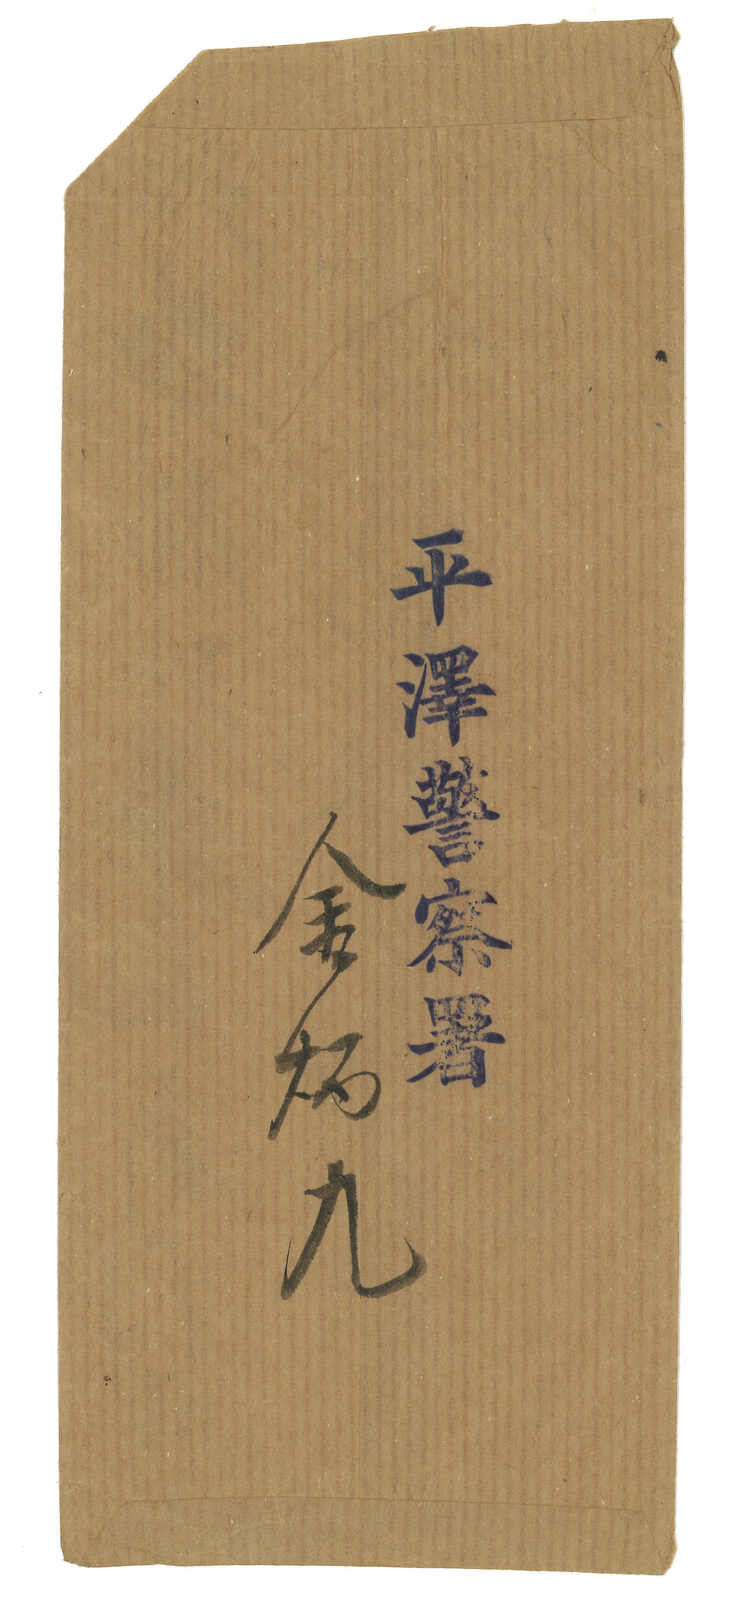 平澤警察署
金炳九